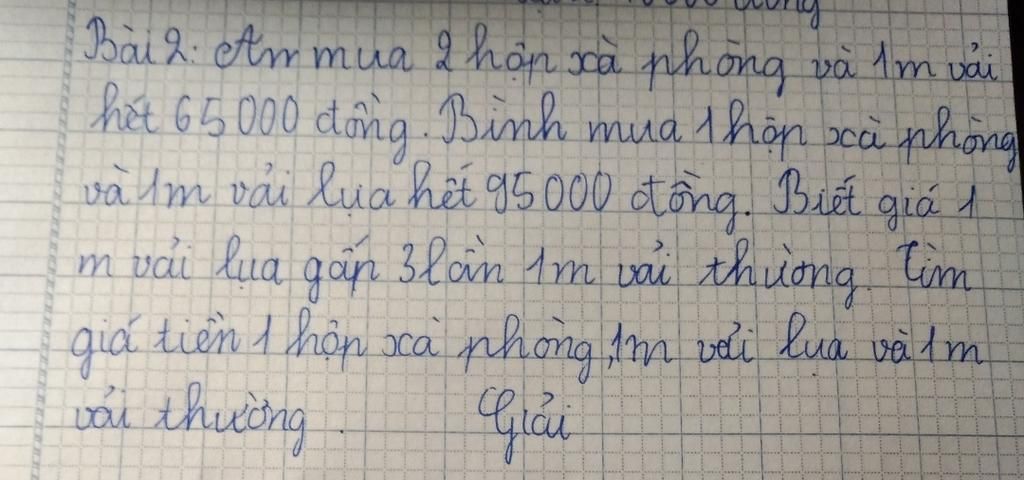 đồng
Bài 2: An mua 2 hộp xà phòng và 1m vải
hết 65 000 đồng. Bình mua 1 hộp xà phòng
và 1m vải lụa hết 95000 đồng. Biết giá 1
m vải lụa gấp 3 lần 1m vải thường. Tìm
giá tiền 1 hộp xà phòng, 1m vải lụa và 1m
vải thường.
Giải